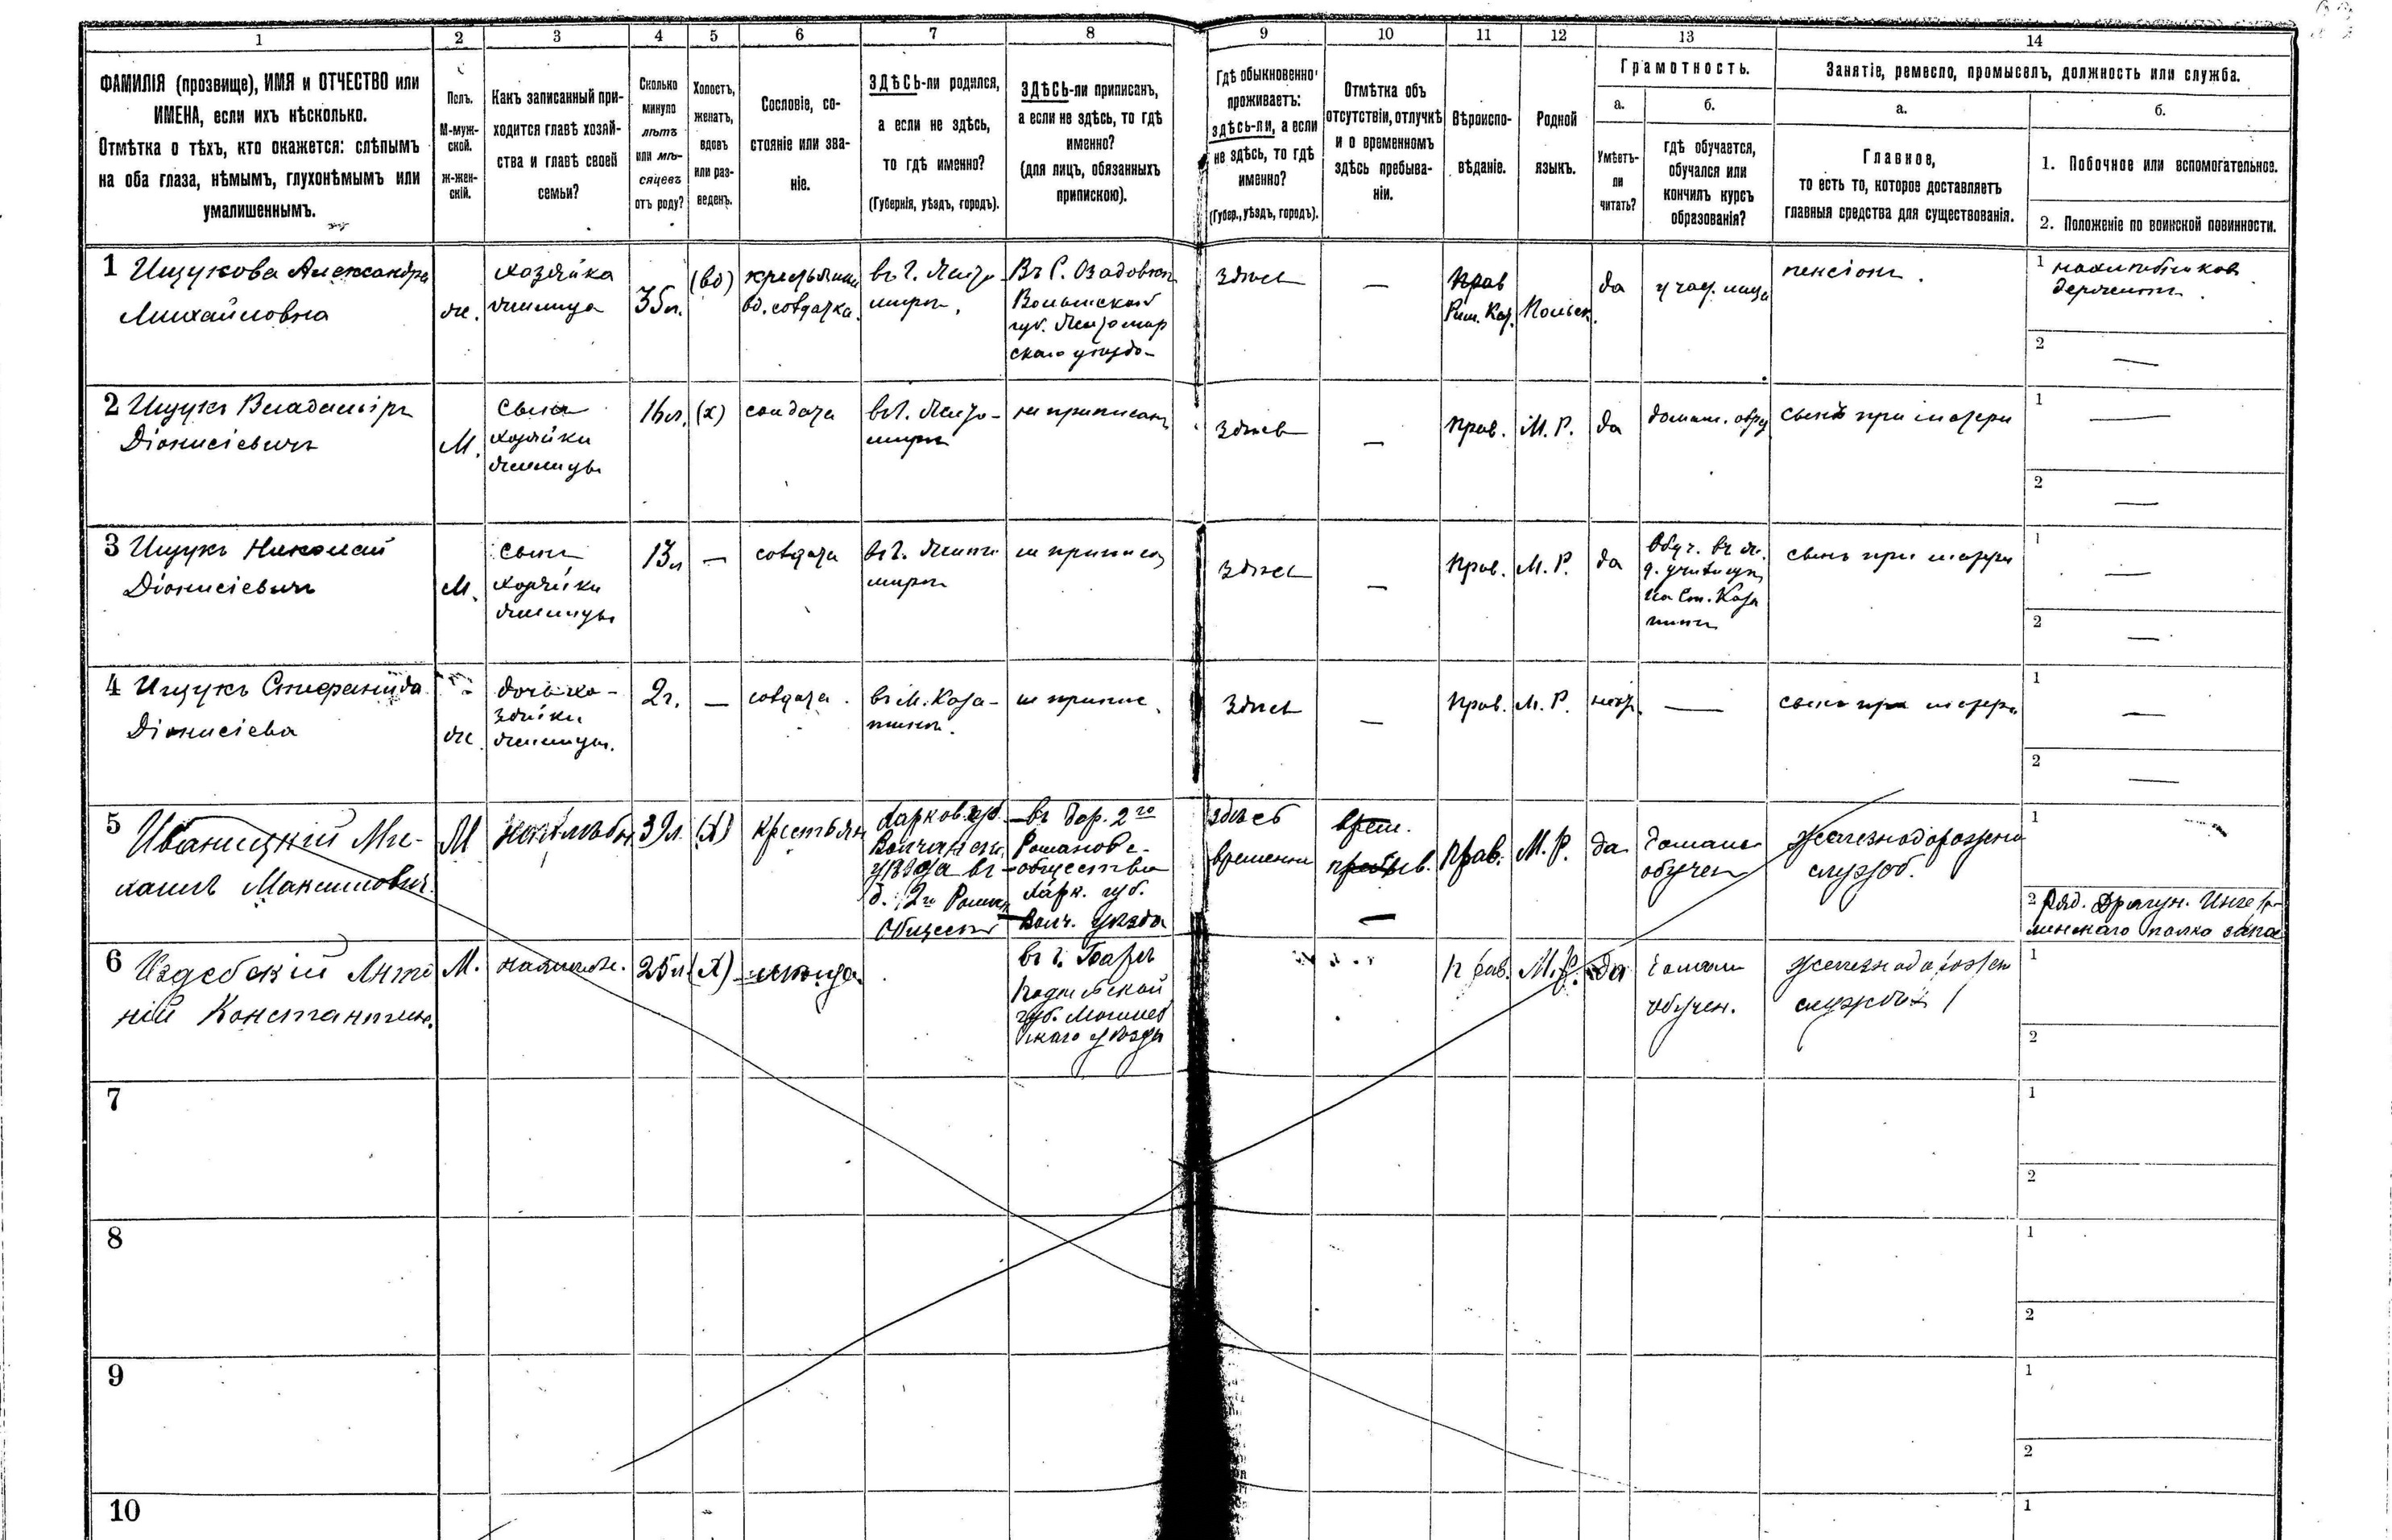 1 2 3 4 5 6 7 8 9 10 11 12 13 14
ФАМИЛІЯ (прозвище), ИМЯ и ОТЧЕСТВО или
ИМЕНА, если ихъ нѣсколько.
Отмѣтка о тѣхъ, кто окажется: слѣпымъ
на оба глаза, нѣмымъ, глухонѣмымъ или
умалишеннымъ.
Полъ.
М-муж-
ской.
ж-жен-
скій.
Какъ записанный при-
ходится главѣ хозяй-
ства и главѣ своей
семьи?
Сколько
минуло
лѣтъ
или мѣ-
сяцевъ
отъ роду?
Холостъ,
женатъ,
вдовъ
или раз-
веденъ.
Сословіе, со-
стояніе или зва-
ніе.
ЗДѢСЬ-ли родился,
а если не здѣсь,
то гдѣ именно?
(Губернія, уѣздъ, городъ).
ЗДѢСЬ-ли приписанъ,
а если не здѣсь, то гдѣ
именно?
(для лицъ, обязанныхъ
припискою).
Гдѣ обыкновенно
проживаетъ:
здѣсь-ли, а если
не здѣсь, то гдѣ
именно?
(Губер., уѣздъ, городъ).
Отмѣтка объ
отсутствіи, отлучкѣ
и о временномъ
здѣсь пребыва-
ніи.
Вѣроиспо-
вѣданіе.
Родной
языкъ.
Грамотность.
а.
Умѣетъ-
ли
читать?
б.
гдѣ обучается,
обучался или
кончилъ курсъ
образованія?
Занятіе, ремесло, промыселъ, должность или служба.
а.
Главное,
то есть то, которое доставляетъ
главныя средства для существованія.
б.
1. Побочное или вспомогательное.
2. Положеніе по воинской повинности.
1 Ищукова Александра
Михайловна
ж.
хозяйка
жилица
35л.
(вд)
вд. солдатка.
въ г. Жито-
мирѣ.
Волынской
губ. Житомир
скаго уѣзда
здѣсь
—
Прав
Рим. Кат.
Польск.
да
пенсіонъ.
1
2 —
2 Ищукъ Владиміръ
Діонисіевичъ
М.
сынъ
хозяйки
жилицы
16л.
(х)
солдата
въ г. Жито-
мирѣ
не приписанъ
здѣсь
—
прав.
М. Р.
да
домаш. обр
сынъ при матери
1 —
2 —
3 Ищукъ Николай
Діонисіевичъ
М.
сынъ
хозяйки
жилицы
13л
—
солдата
въ г. Жито
мирѣ
не приписа
здѣсь
—
прав.
М. Р.
да
обуч. въ ж.
д. училищѣ
на ст. Каза
тинъ
сынъ при матери
1 —
2 —
4 Ищукъ Стефанида
Діонисіева
ж.
дочь хо-
зяйки
жилицы.
2г.
—
солдата.
въ м. Каза-
тинѣ.
не припис.
здѣсь
—
прав.
М. Р.
нѣтъ
—
сынъ при матери
1 —
2 —
5 Иваницкій Ми-
хаилъ Максимович.
М
нахлѣбн
39л.
(х)
крестьян
Харков. губ.
Волчанск.
уѣзда въ
д. 2й Роман
Обществ
— въ дер. 2го
Романовс-
общества
Харк. губ.
Волч. уѣзда
здѣсь
временно
врем.
прибыв.
—
прав.
М. Р.
да
домаш
обучен
желѣзнодорожно
служб.
1
2 Ряд. Драгун. Ингер
манскаго полка запа
6 Издебскій Анто
ній Константин.
М.
нахлѣбн.
25л
(х)
въ г. Барѣ
Подольской
губ. Могилев
скаго уѣзда
прав.
М. Р.
да
домаш
обучен.
желѣзнодорожн
служба
1
2
7
1
2
8
1
2
9
1
2
10
1